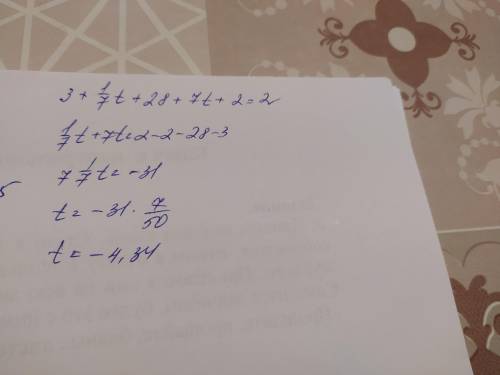 3 + 1/7 t + 28 + 7t + 2 = 2
1/7 t + 7t = 2 - 2 - 28 - 3
7 1/7 t = -31
t = -31 · 7/50
t = -4,34
5